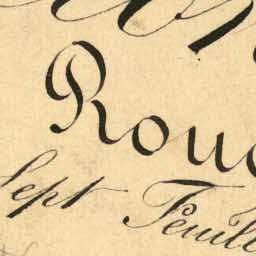 Roue
Sept Feuill